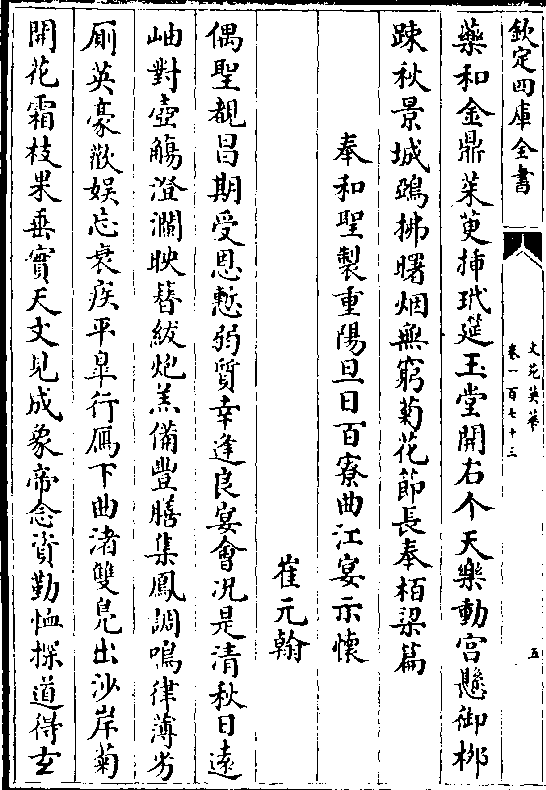 欽定四庫全書
文苑英華
卷一百七十三
五
藥和金鼎茱萸揷玳筵玉堂開右个天樂動宫懸御栁
踈秋景城鵶拂曙烟無窮菊花節長奉栢梁篇
奉和聖製重陽旦日百寮曲江宴示懷
崔元翰
偶聖覩昌期受恩慙弱質幸逢良宴會況是清秋日遠
岫對壺觴澄瀾映簪紱炮羔備豐膳集鳳調鳴律薄劣
厠英豪歡娱忘衰疾平臯行鴈下曲渚雙鳬出沙岸菊
開花霜枝果垂實天文見成象帝念資勤恤探道得玄